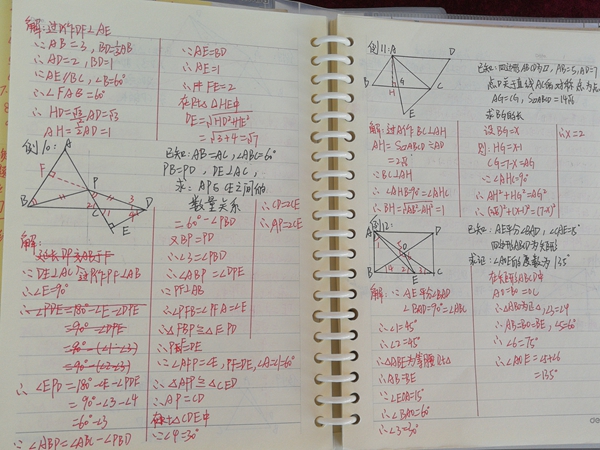 解:过D作DF⊥AE
∴AB=3,BD=⅓AB
∴AD=2,BD=1
∵AE∥BC,∠B=60°
∴∠FAB=60°
∴HD=√3/2AD=√3
AH=½AD=1
∵AE=BD
∴AE=1
∴HE=2
在Rt△HDE中
DE=√HD²+HE²
=√3+4=√7
例10:
已知:AB=AC,∠ABC=60°
PB=PD,DE⊥AC,
求:AP与CE之间的
数量关系
解:
延长DP交AB于F
∵DE⊥AC,过P作PF⊥AB
∴∠E=90°
∴∠PDE=180°-∠E-∠DPE
=90°-∠DPE
=90°-(∠1-∠3)
=90°-(∠2-∠3)
∴∠EPD=180°-∠E-∠PDE
=90°-∠3-∠4
=60°-∠3
∵∠ABP=∠ABC-∠PBD
=60°-∠PBD
又BP=PD
∴∠3=∠PBD
∴∠ABP=∠DPE
∵PF⊥AB
∴∠PFB=∠PFA=∠E
∴△FBP≌△EPD
∴PF=DE
∵∠AFP=∠E,PF=DE,∠A=∠1=60°
∴△APF≌△CED
∴AP=CD
在Rt△CDE中
∵∠4=30°
∴CD=2CE
∴AP=2CE
例11:
AG=CG,S▱ABCD=14√6
求BG的长
解:过A作BC⊥AH
AH=S▱ABCD÷AD
=2√6
∵BC⊥AH
∴∠AHB=90°=∠AHC
∴BH=√AB²-AH²=1
设BG=X
则:HG=X-1
CG=7-X=AG
∵∠AHC=90°
∴AH²+HG²=AG²
∴(2√6)²+(X-1)²=(7-X)²
∴X=2
例12:
已知:AE平分∠BAD,∠CAE=15°
四边形ABCD为矩形
求证:∠AOE的度数为135°
解:∵AE平分∠BAD
∠BAD=90°=∠ABC
∴∠1=45°
∴∠2=45°
∴△ABE为等腰Rt△
∴AB=BE
∵∠EOA=15°
∴∠BAO=60°
∴∠3=30°
在矩形ABCD中
AO=BO=OC
∴AB=BO=BE,∠5=60°
∴∠6=75°
∴∠AOE=∠5+∠6
=135°